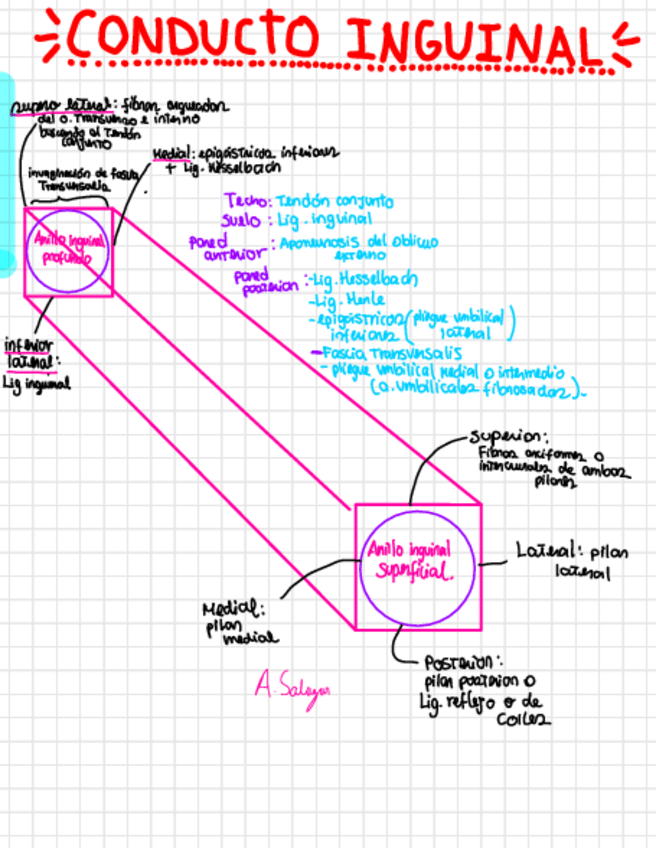 CONDUCTO INGUINAL
supero lateral: fibras arqueadas
del o. Transverso e interno
buscando al Tendón
conjunto
Medial: epigástricas inferiores
+ Lig. Hesselbach
invaginación de fascia
Transversalis
Anillo inguinal
profundo
Techo: Tendón conjunto
suelo: Lig. inguinal
pared
anterior: Aponeurosis del oblicuo
externo
pared
posterior: -Lig. Hesselbach
-Lig. Henle
-epigástricas (pliegue umbilical
inferiores lateral)
-Fascia Transversalis
-pliegue umbilical medial o intermedio
(a. umbilicales fibrosadas).
inferior
lateral:
Lig inguinal
superior:
Fibras arciformes o
intercrurales de ambos
pilares
Anillo inguinal
superficial.
Lateral: pilar
lateral
Medial:
pilar
medial
Posterior:
pilar posterior o
Lig. reflejo o de
Colles
A. Salazar